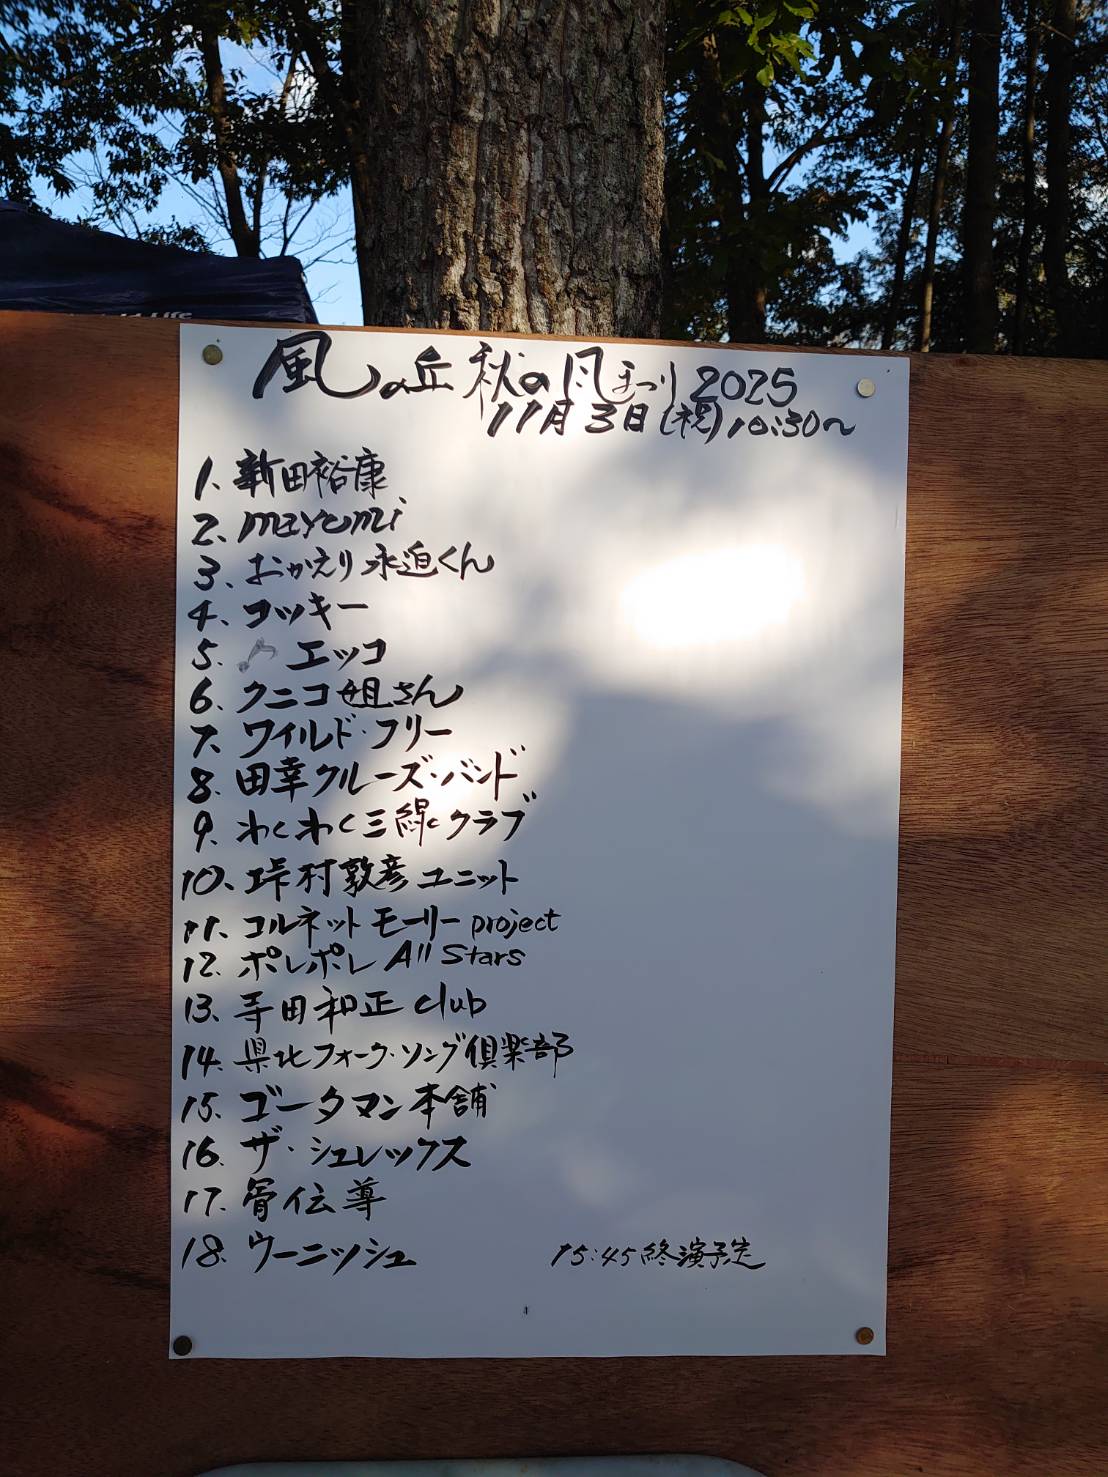 風の丘 秋の風まつり 2025
11月3日(祝) 10:30〜
1. 新田裕康
2. mayumi
3. おかえり永迫くん
4. コッキー
5. エッコ
6. クニコ姐さん
7. ワイルド・フリー
8. 田幸クルーズ・バンド
9. わくわく三線クラブ
10. 垰村敦彦ユニット
11. コルネットモーリー project
12. ポレポレ All Stars
13. 寺田和正 club
14. 県北フォーク・ソング倶楽部
15. ゴータマン本舗
16. ザ・シュレックス
17. 骨伝導
18. ウーニッシュ
15:45終演予定